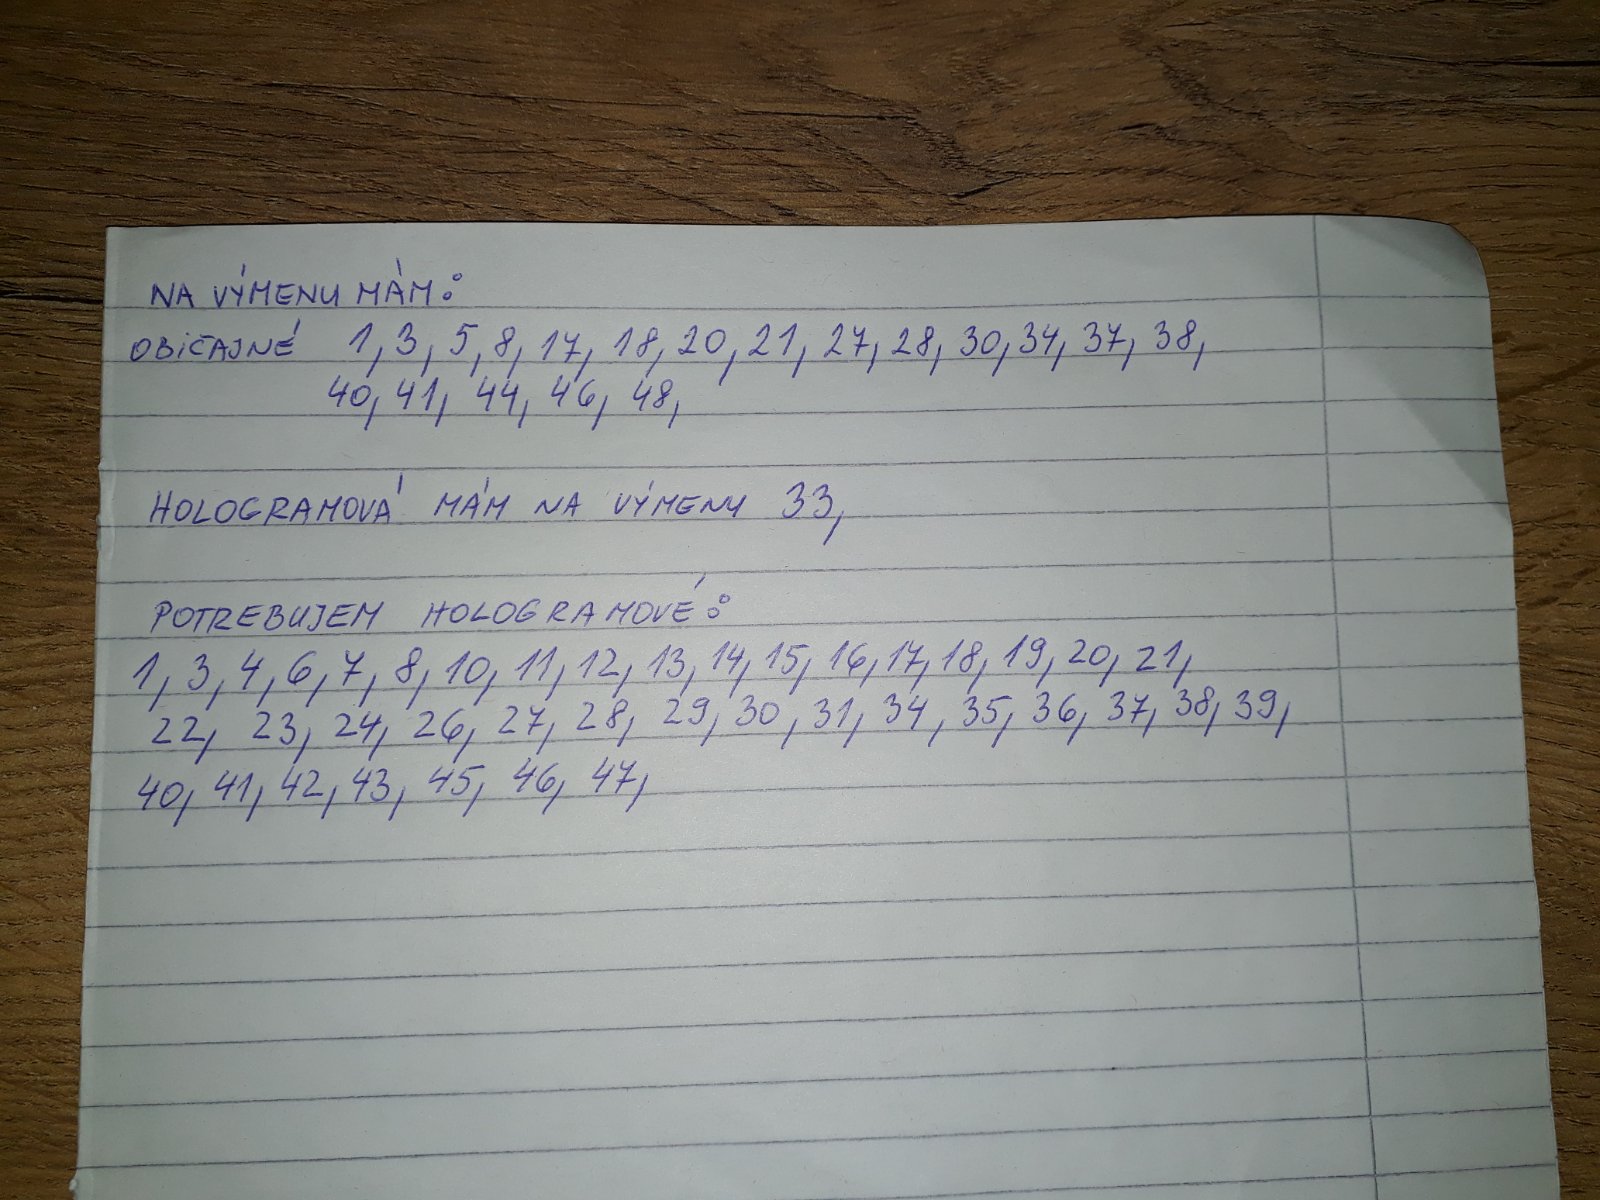 NA VÝMENU MÁM:
OBIČAJNÉ 1, 3, 5, 8, 17, 18, 20, 21, 27, 28, 30, 34, 37, 38,
40, 41, 44, 46, 48,
HOLOGRAMOVÁ MÁM NA VÝMENU 33,
POTREBUJEM HOLOGRAMOVÉ:
1, 3, 4, 6, 7, 8, 10, 11, 12, 13, 14, 15, 16, 17, 18, 19, 20, 21,
22, 23, 24, 26, 27, 28, 29, 30, 31, 34, 35, 36, 37, 38, 39,
40, 41, 42, 43, 45, 46, 47,